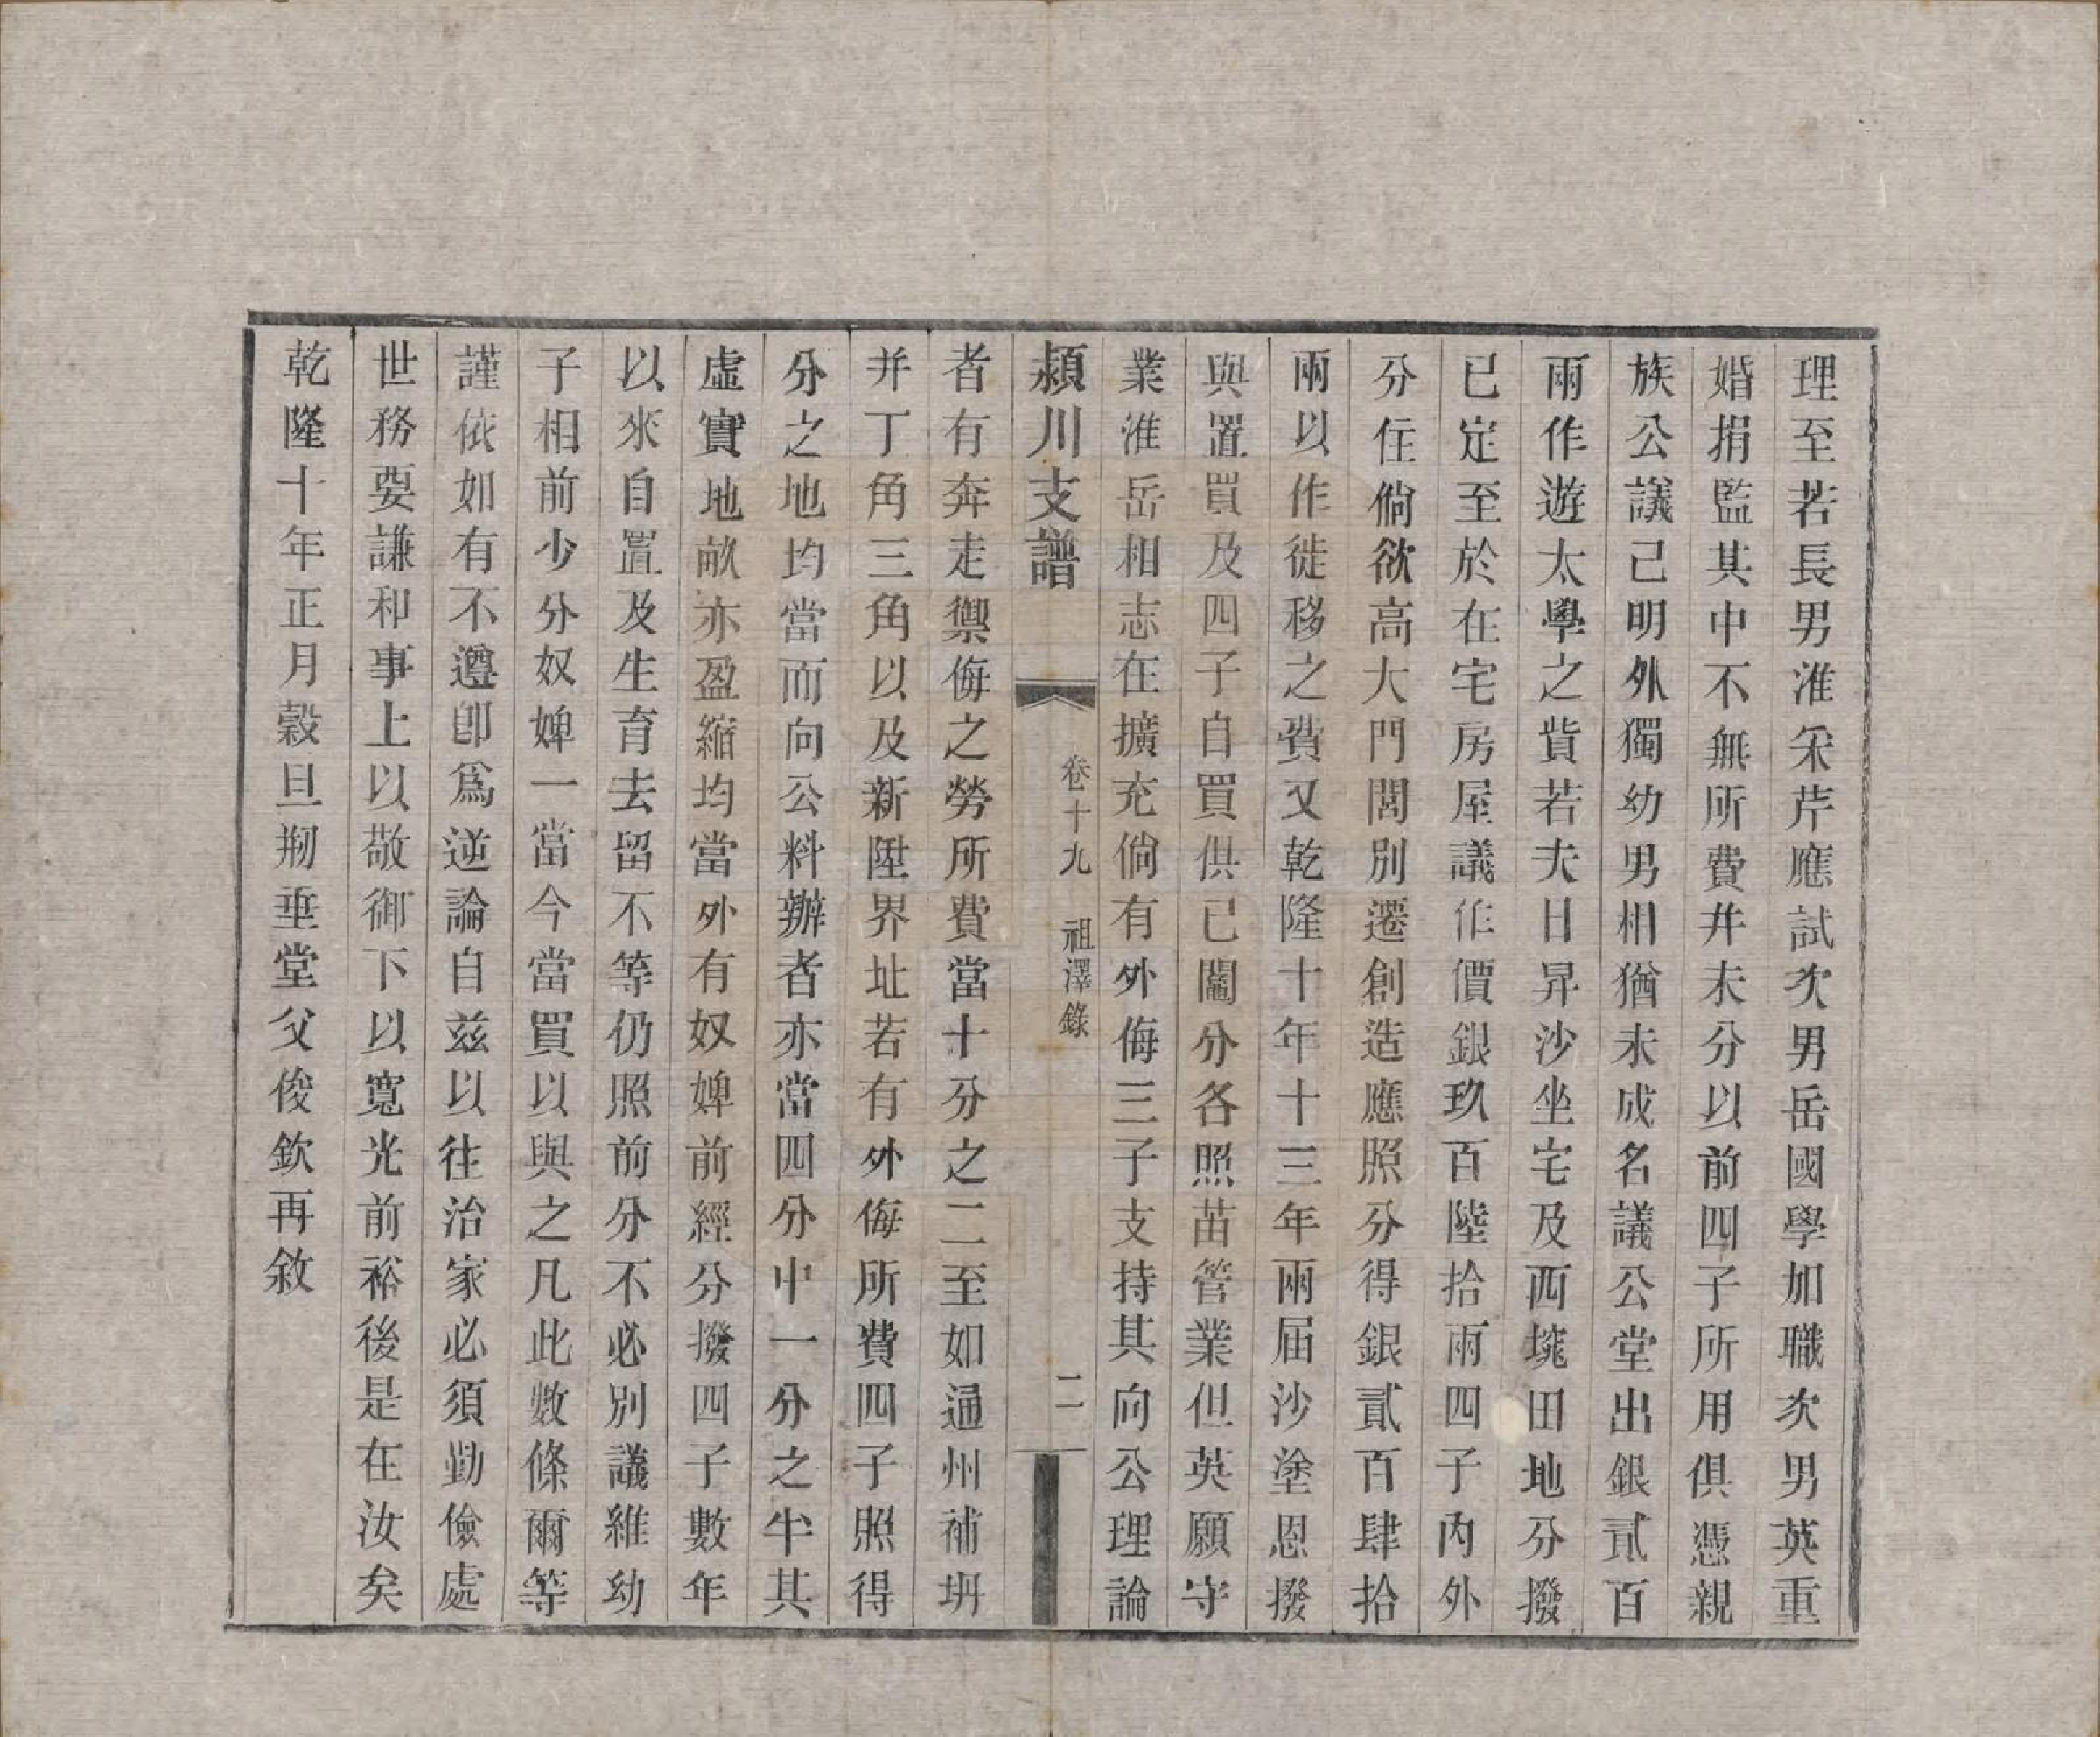 理至若長男淮采芹應試次男岳國學加職次男英重
婚捐監其中不無所費并未分以前四子所用俱憑親
族公議已明外獨幼男相猶未成名議公堂出銀貳百
兩作遊太學之貲若夫日昇沙坐宅及西㙮田地分撥
已定至於在宅房屋議作價銀玖百陸拾兩四子內外
分住倘欲高大門閭別遷創造應照分得銀貳百肆拾
兩以作徙移之費又乾隆十年十三年兩届沙塗恩撥
與置買及四子自買俱已鬮分各照苗管業但英願守
業淮岳相志在擴充倘有外侮三子支持其向公理論
潁川支譜 卷十九 祖澤錄 二
者有奔走禦侮之勞所費當十分之二至如通州補坍
并丁角三角以及新陞界址若有外侮所費四子照得
分之地均當而向公料辦者亦當四分中一分之半其
虛實地畝亦盈縮均當外有奴婢前經分撥四子數年
以來自置及生育去留不等仍照前分不必別議維幼
子相前少分奴婢一當今當買以與之凡此數條爾等
謹依如有不遵卽爲逆論自兹以往治家必須勤儉處
世務要謙和事上以敬御下以寬光前裕後是在汝矣
乾隆十年正月穀旦剏垂堂父俊欽再敘